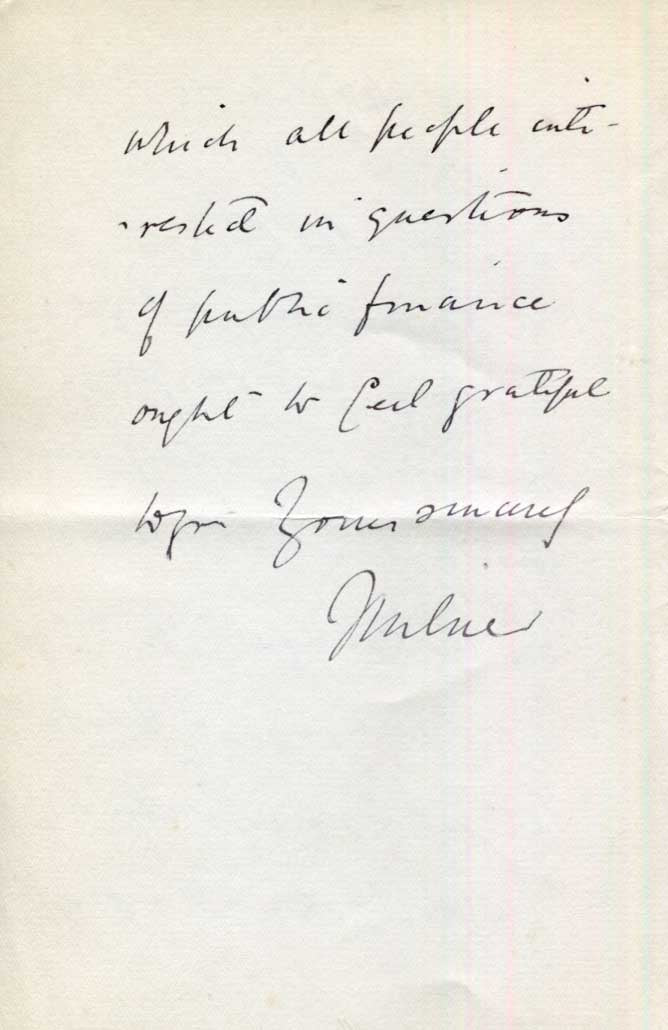 which all people inte-
-rested in questions
of public finance
ought to feel grateful
to you Yours sincerely
Milner